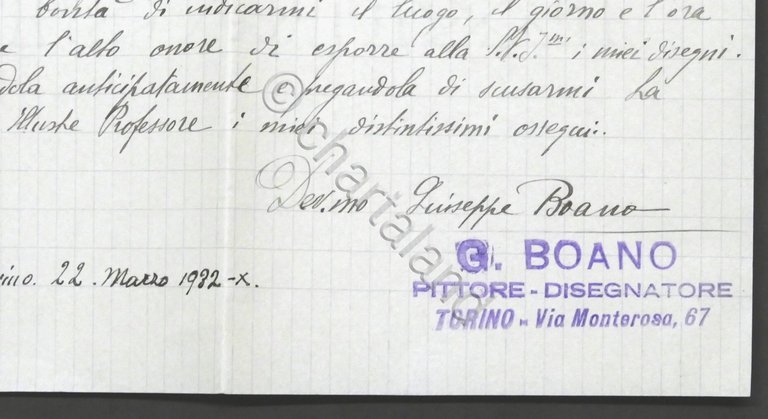 bontà di indicarmi il luogo, il giorno e l'ora
e l'alto onore di esporre alla S.V.Ill.mi i miei disegni.
dola anticipatamente e pregandola di scusarmi La
illustre Professore i miei distintissimi ossequi..
Dev.mo Giuseppe Boano
rino. 22. Marzo 1932-X.
G. BOANO
PITTORE - DISEGNATORE
TORINO - Via Monterosa, 67
© chartaland